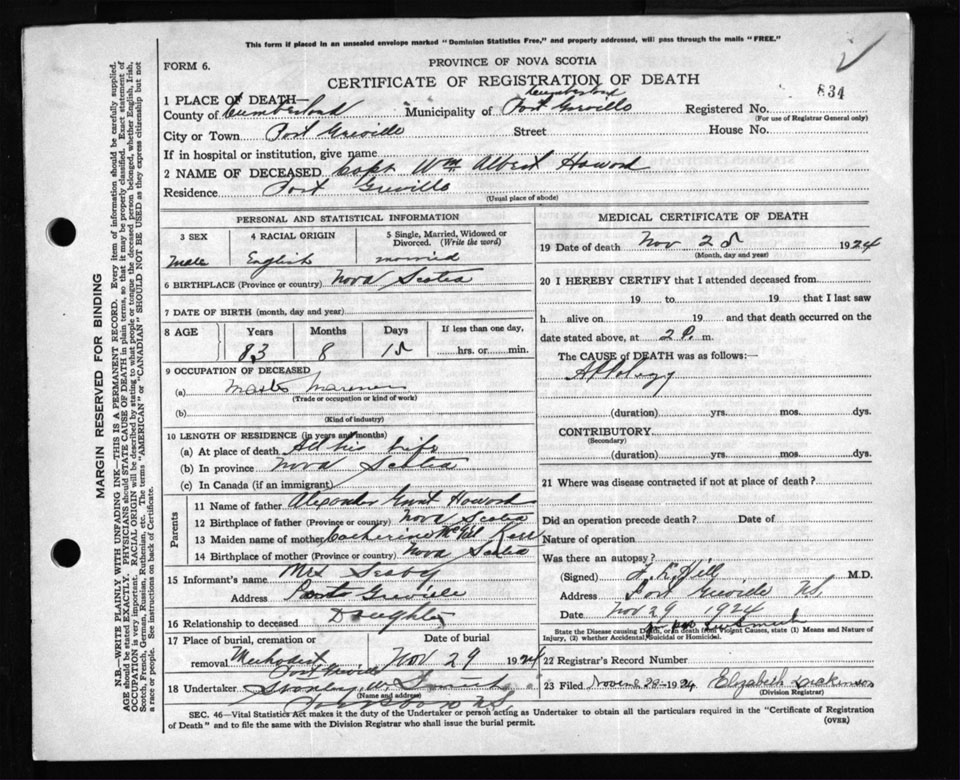 This form if placed in an unsealed envelope marked "Dominion Statistics Free," and properly addressed, will pass through the mails "FREE."
FORM 6.
PROVINCE OF NOVA SCOTIA
CERTIFICATE OF REGISTRATION OF DEATH
834
1 PLACE OF DEATH—
Cumberland
County of Cumberland Municipality of Port Greville Registered No.
(For use of Registrar General only)
City or Town Port Greville Street House No.
If in hospital or institution, give name
2 NAME OF DECEASED Capt Wm Albert Howard
Residence Port Greville
(Usual place of abode)
MARGIN RESERVED FOR BINDING
N.B.—WRITE PLAINLY WITH UNFADING INK—THIS IS A PERMANENT RECORD. Every item of information should be carefully supplied.
AGE should be stated EXACTLY. PHYSICIANS should STATE CAUSE OF DEATH in plain terms, so that it may be properly classified. Exact statement of
OCCUPATION is very important. RACIAL ORIGIN will be described by stating to what people or tongue the deceased person belonged, whether English, Irish,
Scotch, French, German, Russian, Ruthenian, etc. The terms "AMERICAN" or "CANADIAN" SHOULD NOT BE USED as they express citizenship but not
a race or people. See instructions on back of Certificate.
PERSONAL AND STATISTICAL INFORMATION
3 SEX
Male
4 RACIAL ORIGIN
English
5 Single, Married, Widowed or
Divorced. (Write the word)
married
6 BIRTHPLACE (Province or country) Nova Scotia
7 DATE OF BIRTH (month, day and year)
8 AGE Years Months Days If less than one day,
83 8 15 hrs. or min.
9 OCCUPATION OF DECEASED
(a) Master Mariner
(Trade or occupation or kind of work)
(b)
(Kind of industry)
10 LENGTH OF RESIDENCE (in years and months)
(a) At place of death All his life
(b) In province Nova Scotia
(c) In Canada (if an immigrant)
Parents
11 Name of father Alexander Grant Howard
12 Birthplace of father (Province or country) Nova Scotia
13 Maiden name of mother Catherine
14 Birthplace of mother (Province or country) Nova Scotia
15 Informant's name Mrs
Address Port Greville
16 Relationship to deceased Daughter
17 Place of burial, cremation or Date of burial
removal Methodist Nov 29 1924
Port Greville
18 Undertaker Stanley W. Smith
(Name and address)
Parrsboro N.S.
MEDICAL CERTIFICATE OF DEATH
19 Date of death Nov 25 1924
(Month, day and year)
20 I HEREBY CERTIFY that I attended deceased from
19 to 19 that I last saw
h alive on 19 and that death occurred on the
date stated above, at 2 P. m.
The CAUSE of DEATH was as follows:
Apoplexy
(duration) yrs. mos. dys.
CONTRIBUTORY
(Secondary)
(duration) yrs. mos. dys.
21 Where was disease contracted if not at place of death?
Did an operation precede death? Date of
Nature of operation
Was there an autopsy?
(Signed) M.D.
Address Port Greville N.S.
Date Nov 29 1924
State the Disease causing Death, or in death from Violent Causes, state (1) Means and Nature of
Injury, (2) whether Accidental, Suicidal or Homicidal.
22 Registrar's Record Number
23 Filed 1924 Elizabeth
(Division Registrar)
SEC. 46—Vital Statistics Act makes it the duty of the Undertaker or person acting as Undertaker to obtain all the particulars required in the "Certificate of Registration
of Death" and to file the same with the Division Registrar who shall issue the burial permit.
(OVER)